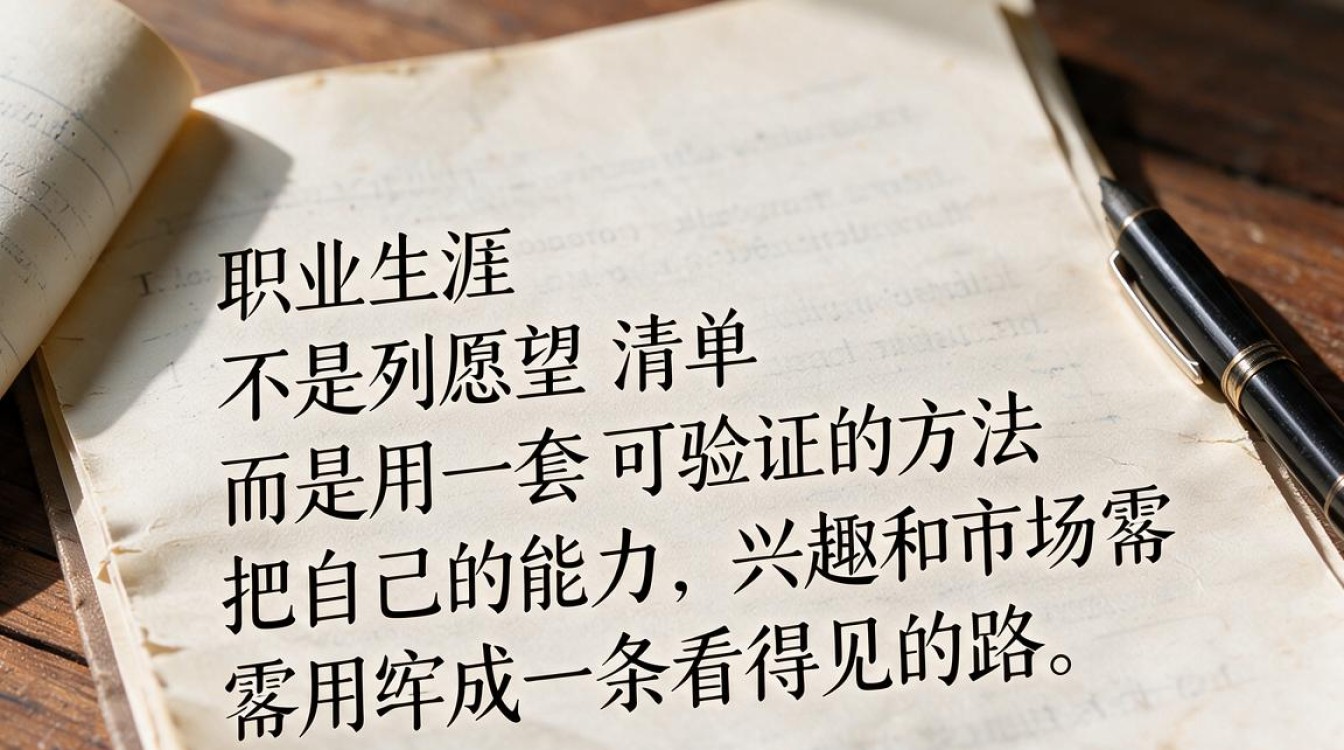 职业生涯
不是列愿望 清单
而是用一套 可验证的方法
把自己的能力，兴趣和市场
用成一条看得见的路。